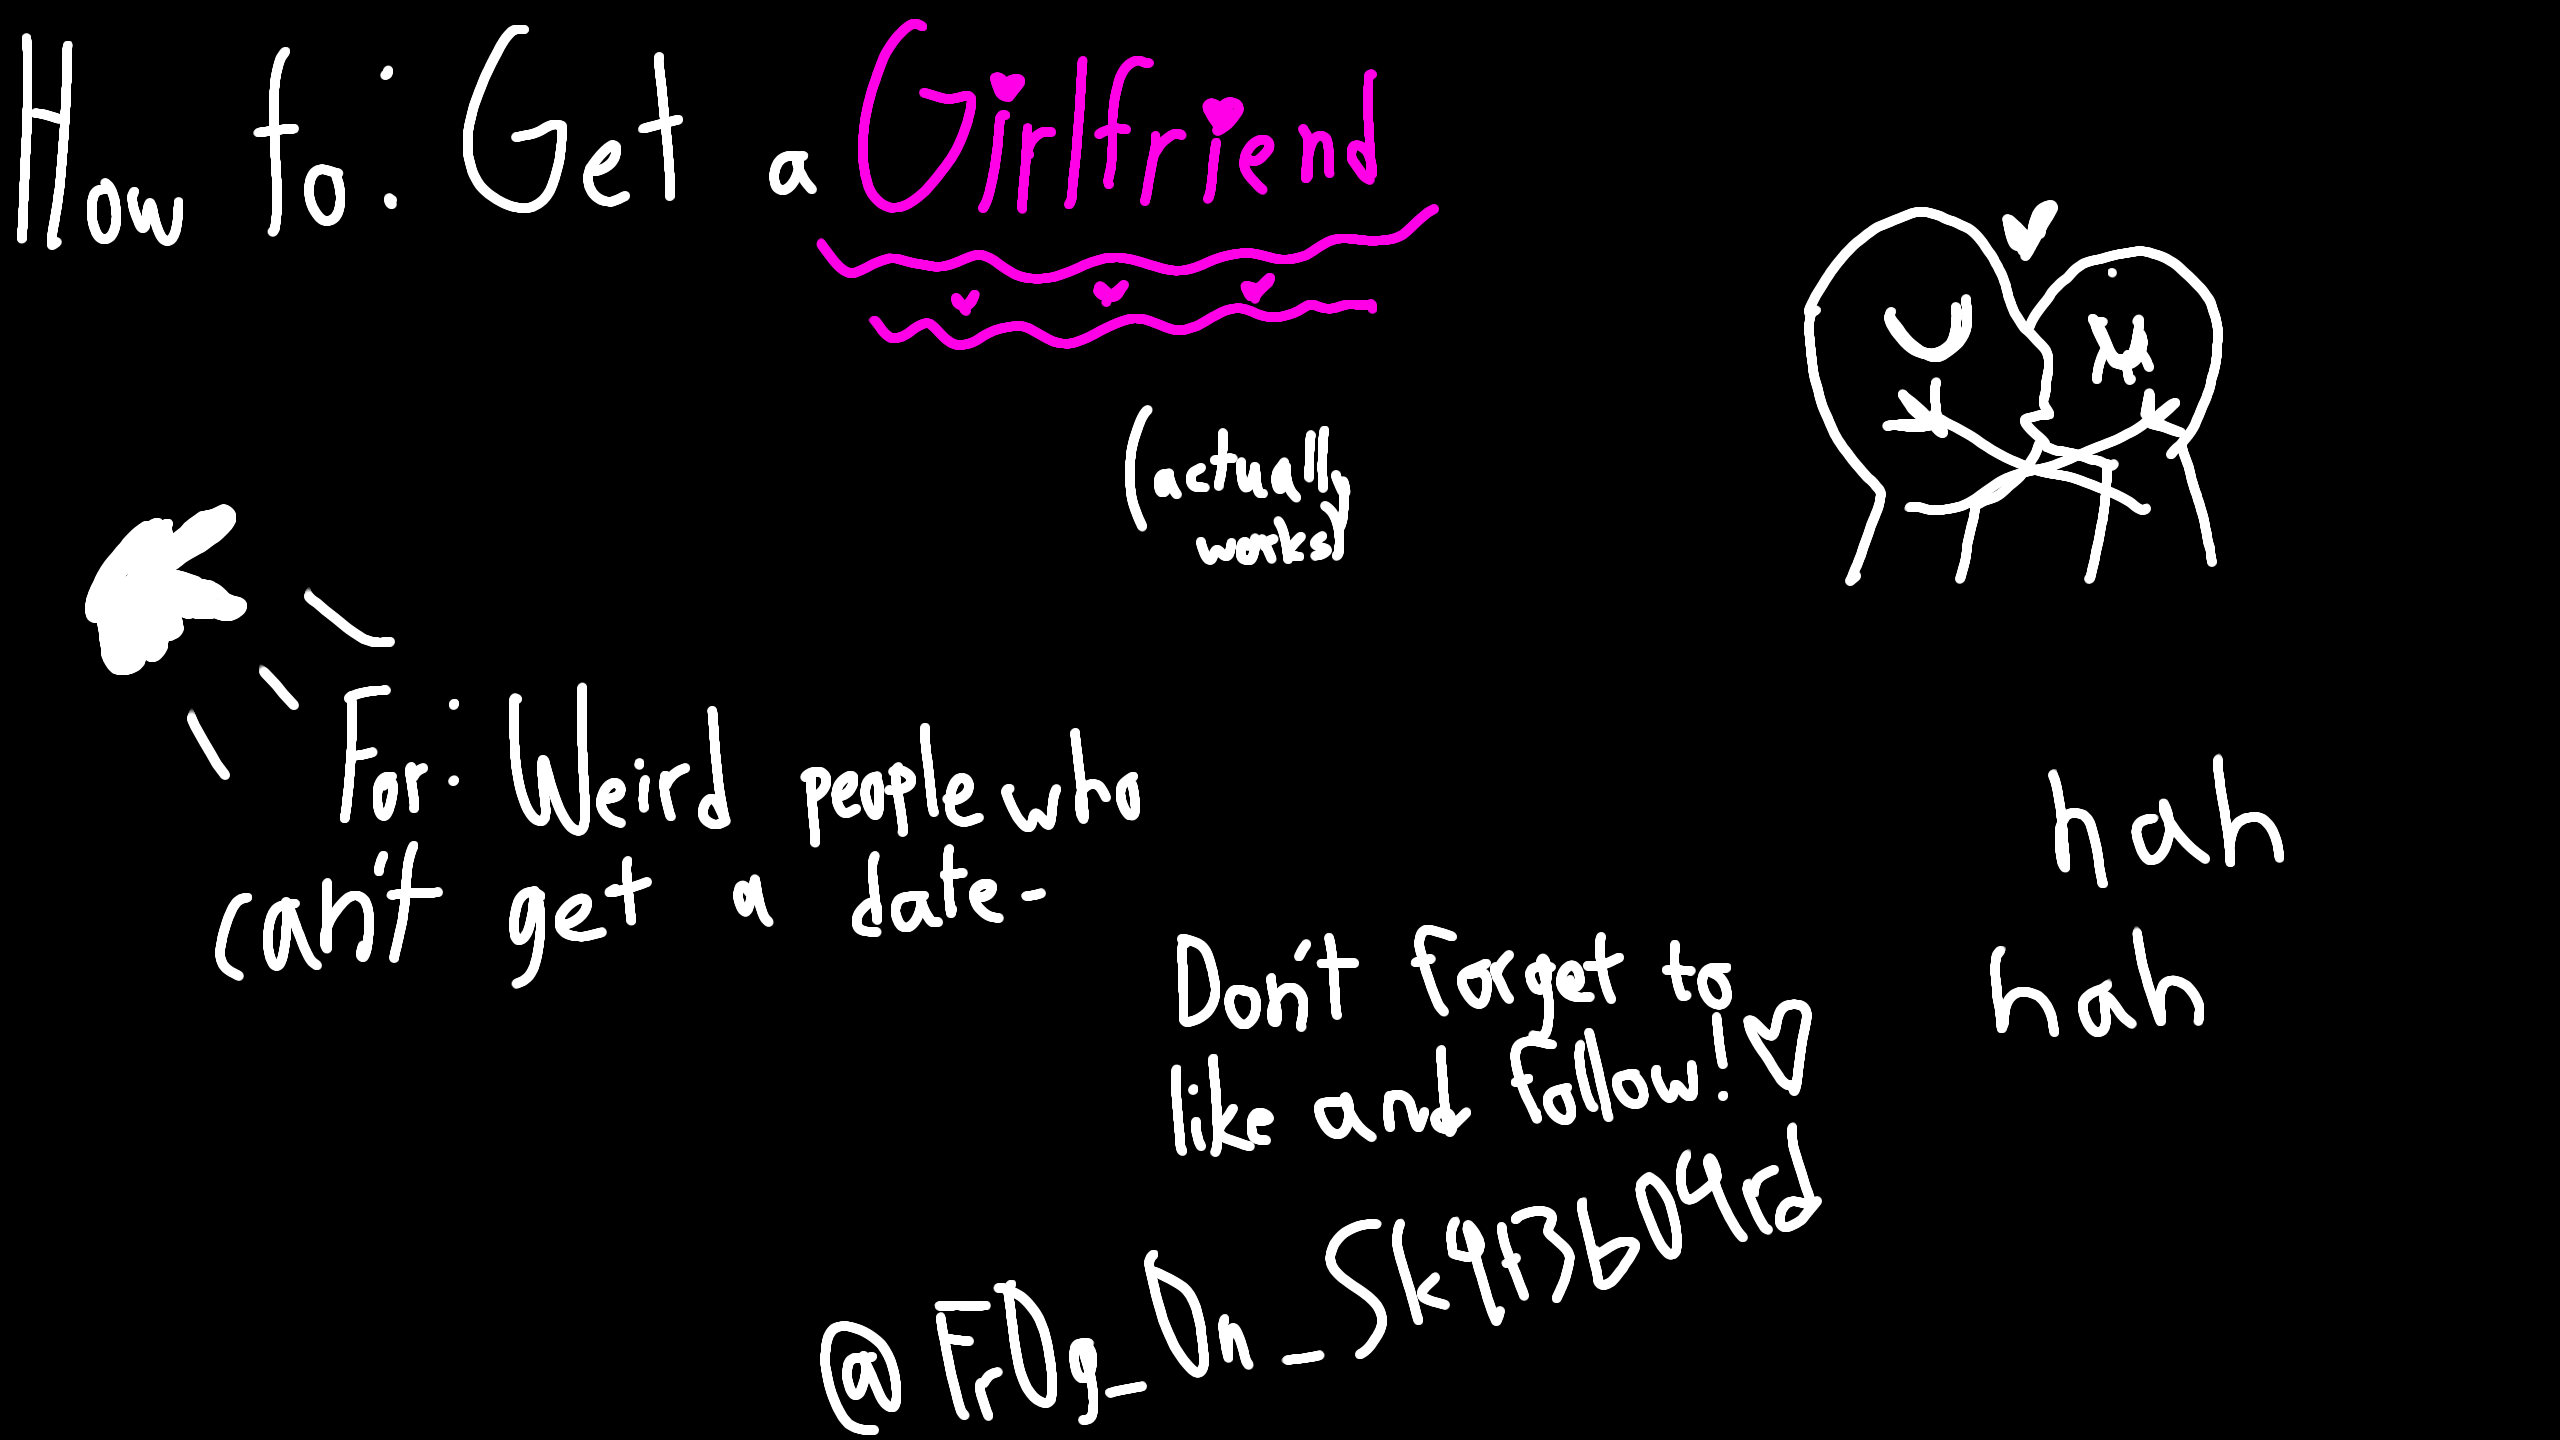 How to: Get a Girlfriend
(actually
works)
For: Weird people who
can't get a date-
hah
hah
Don't forget to
like and follow!
@Fr0g_0n_Sk4t3b04rd